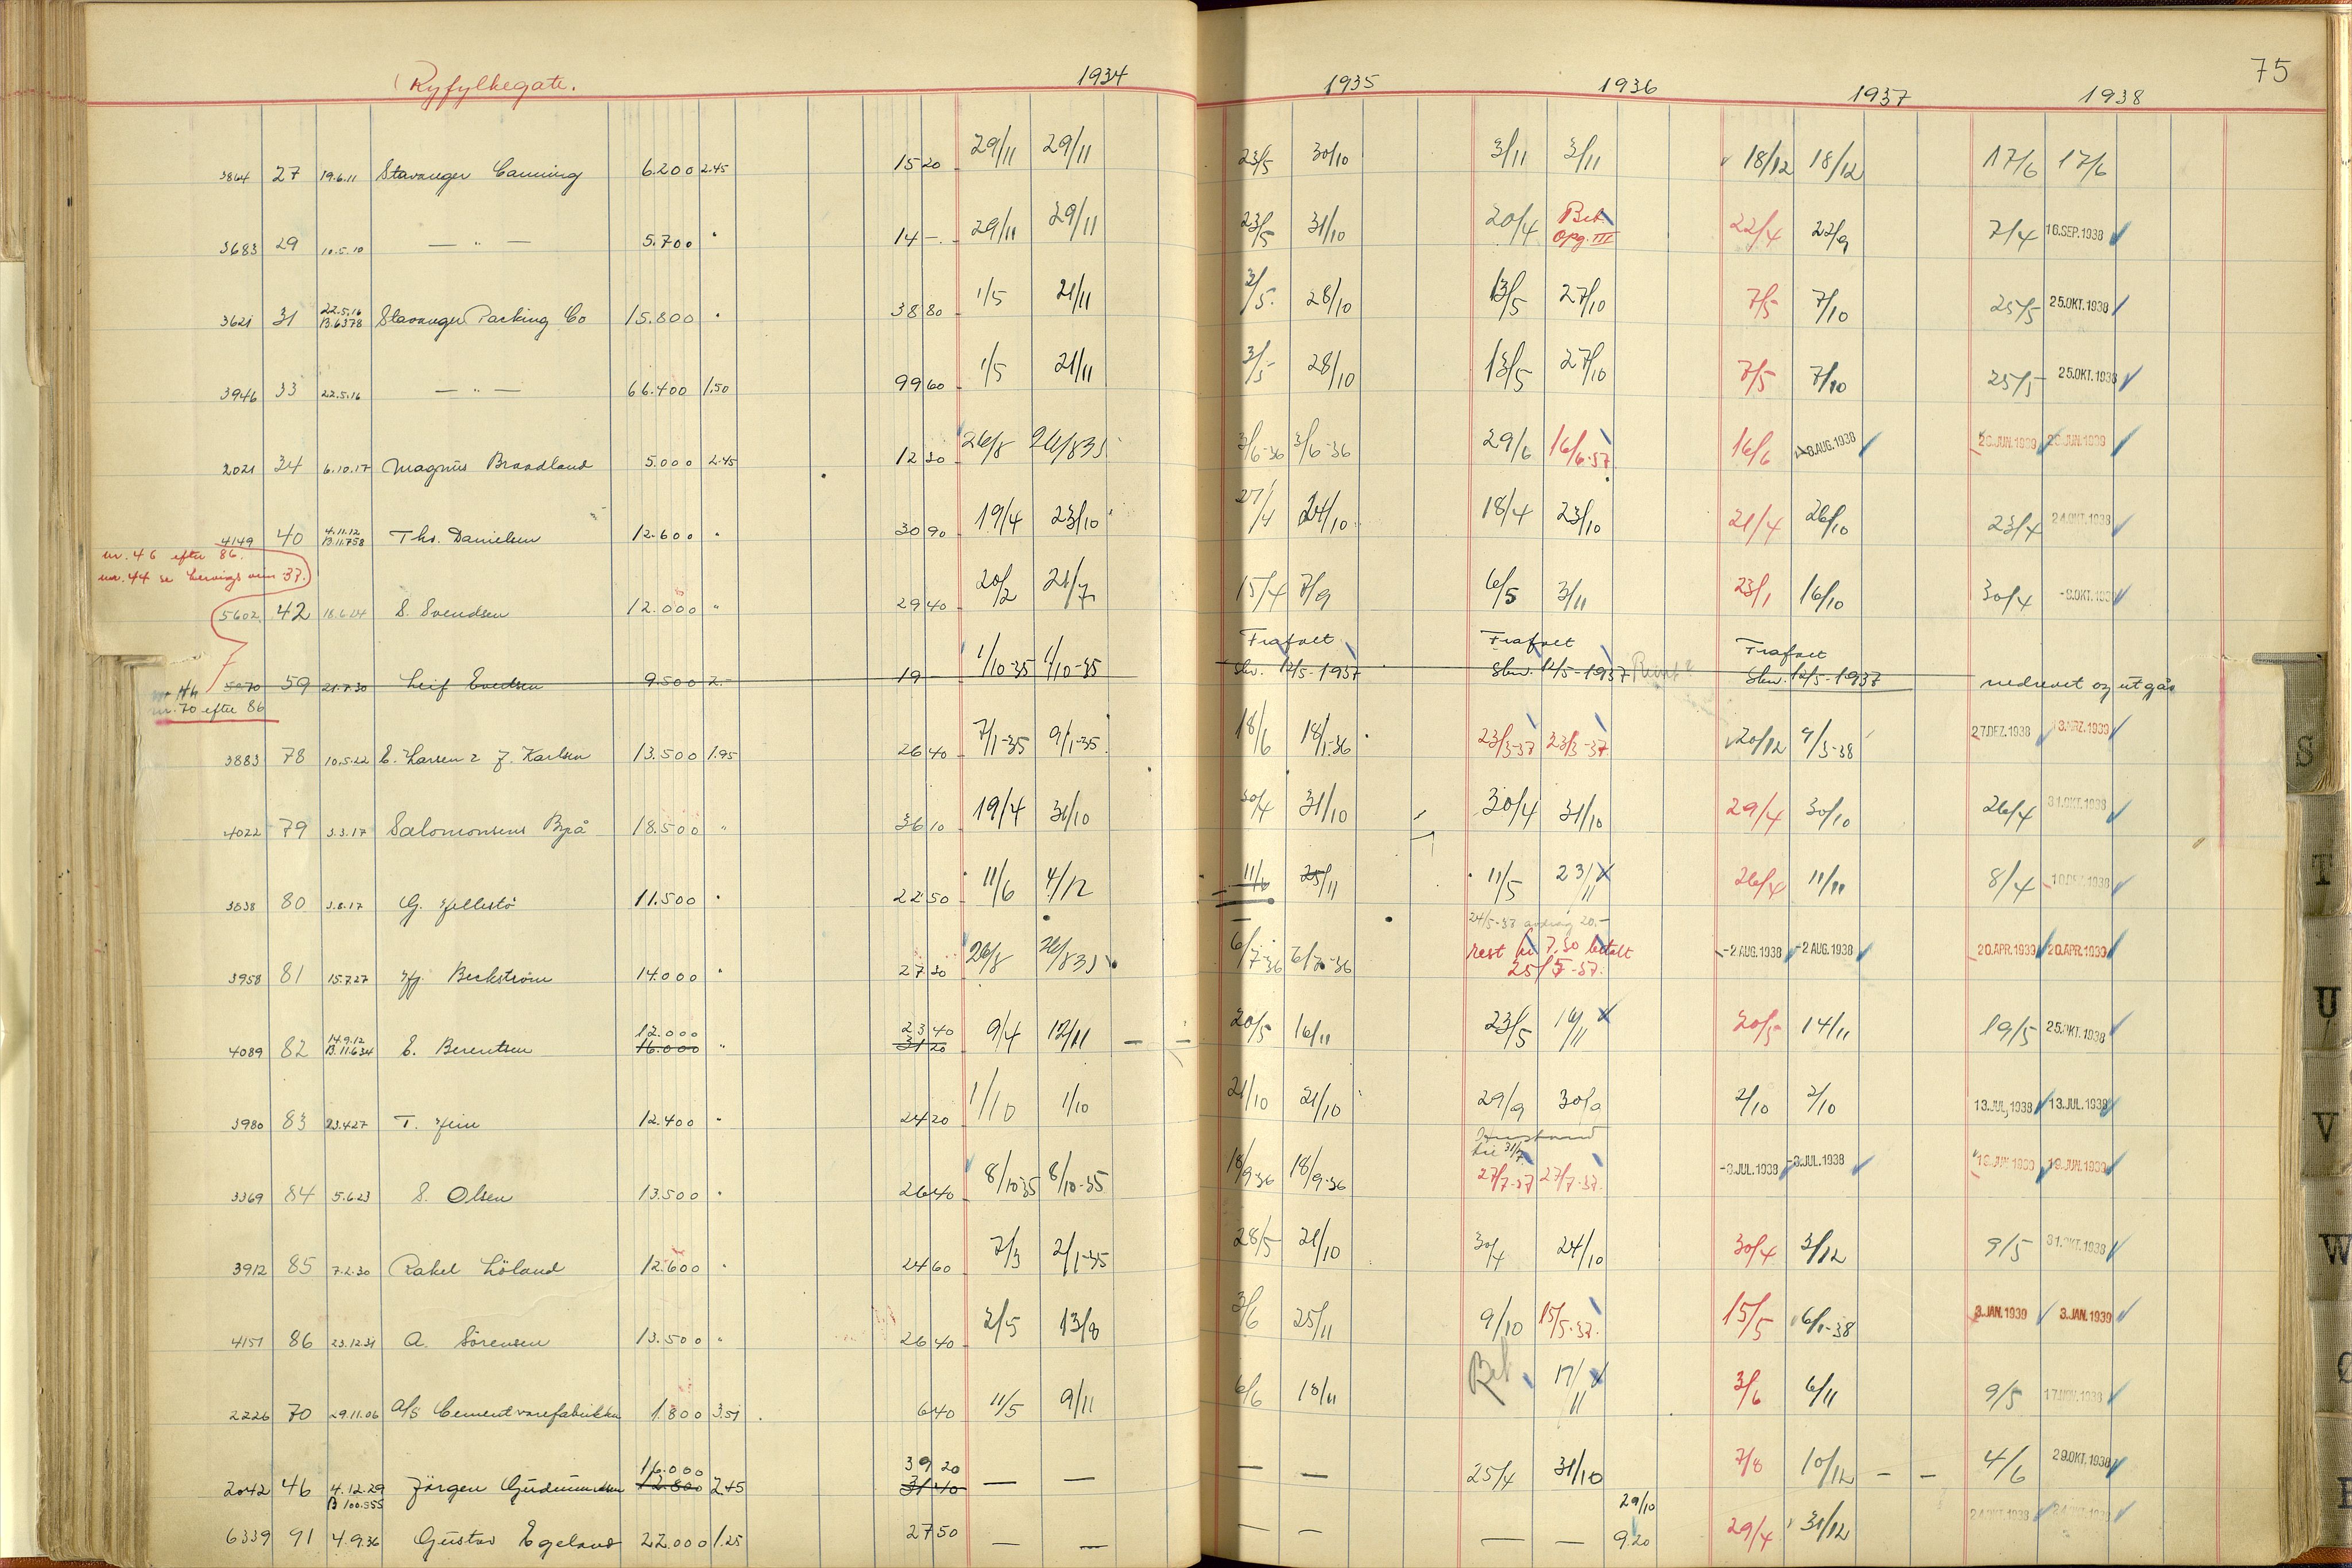 Ryfylkegate. 1934 1935 1936 1937 1938 75
3864 27 19.6.11 Stavanger Canning 6.200 2.45 15 20 29/11 29/11 23/5 30/10 3/11 3/11 18/12 18/12 17/6 17/6
3683 29 10.5.10 — " — 5.700 " 14 — 29/11 29/11 23/5 31/10 20/4 Bet. Opg. III 22/4 22/9 7/4 16.SEP.1938
3621 31 22.5.16 B.6378 Stavanger Packing Co 15.800 " 38 80 1/5 21/11 3/5 28/10 13/5 27/10 7/5 7/10 25/5 25.OKT.1938
3946 33 22.5.16 — " — 66.400 1.50 99 60 1/5 21/11 3/5 28/10 13/5 27/10 7/5 7/10 25/5 25.OKT.1938
2021 34 6.10.17 Magnus Braadland 5.000 2.45 12 30 26/8 26/8 35 3/6-36 3/6-36 29/6 16/6-37 16/6 -8.AUG.1938 20.JUN.1939 20.JUN.1939
4149 40 4.11.12 B.11.758 Ths. Danielsen 12.600 " 30 90 19/4 23/10 27/4 24/10 18/4 23/10 21/4 26/10 23/4 24.OKT.1938
nr. 46 efter 86.
nr. 44 se 37.
5602 42 18.6.24 S. Svendsen 12.000 " 29 40 20/2 21/7 15/4 7/9 6/5 3/11 23/1 16/10 30/4 -8.OKT.1938
5070 59 21.7.30 Leif Evertsen 9.500 2.- 19 — 1/10-35 1/10-35 Frafalt Skv. 12/5-1937 Frafalt Skv. 12/5-1937 Frafalt Skv. 12/5-1937 nedrevet og utgår
nr. 70 efter 86
3883 78 10.5.22 E. Larsen & J. Karlsen 13.500 1.95 26 40 7/1-35 9/1-35 18/6 18/1-36 23/3-37 23/3-37 20/12 9/3-38 27.DEZ.1938 3.MRZ.1939
4022 79 3.3.17 Salomonsens Bpå 18.500 " 36 10 19/4 31/10 30/4 31/10 30/4 31/10 29/4 30/10 26/4 31.OKT.1938
3038 80 3.8.17 G. 11.500 " 22 50 11/6 4/12 11/6 25/11 11/5 23/11 26/4 11/11 8/4 1938
24/5-37 avdrag 20.-
3958 81 15.7.27 Hj. Beckström 14.000 " 27 30 26/8 26/8 35 6/7-36 6/7-36 rest kr 7.30 betalt 25/5-37. -2 AUG.1938 -2 AUG.1938 20.APR.1939 20.APR.1939
4089 82 14.9.12 B.11.634 E. Berentsen 12.000 16.000 " 23 40 31 20 9/4 12/11 — — 20/5 16/11 23/5 16/11 20/5 14/11 19/5 25.OKT.1938
3980 83 23.4.27 T. 12.400 " 24 20 1/10 1/10 21/10 21/10 29/9 30/9 2/10 2/10 13.JUL.1938 13.JUL.1938
3369 84 5.6.23 S. Olsen 13.500 " 26 40 8/10-35 8/10-35 18/9-36 18/9-36 til 31/7 27/7-37 27/7-37. -8.JUL.1938 -8.JUL.1938 19.JUN.1939 19.JUN.1939
3912 85 7.2.30 Rakel Löland 12.600 " 24 60 7/3 2/1-35 28/5 21/10 30/4 24/10 30/4 3/12 9/5 31.OKT.1938
4151 86 23.12.31 A. Sörensen 13.500 " 26 40 2/5 13/8 3/6 25/11 9/10 15/5-37. 15/5 6/1-38 3.JAN.1939 3.JAN.1939
2226 70 29.11.06 A/S Cementvarefabrikken 1.800 3.51 6 40 11/5 9/11 6/6 18/11 Bet. 17/11 3/6 6/11 9/5 17.NOV.1938
2042 46 4.12.29 B 100.555 Jörgen Gudmundsen 16.000 12.800 2.45 39 20 31 40 — — — — 25/4 31/10 7/8 10/12 — — 4/6 29.OKT.1938
6339 91 4.9.36 Gustav Egeland 22.000 1.25 27 50 — — — — — — 29/10 9.20 29/4 31/12 24.OKT.1938 24.OKT.1938
S
T
U
V
W